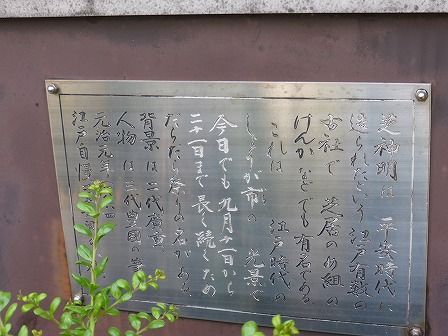 芝神明は 平安時代に
造られたという 江戸有数の
古社で 芝居のめ組の
けんかなどでも有名である
これは 江戸時代の
しょうが市の 光景で
今日でも九月十一日から
二十一日まで長く続くため
だらだら祭りの名がある。
背景は二代広重
人物は三代豊国の筆
元治元年
江戸自慢